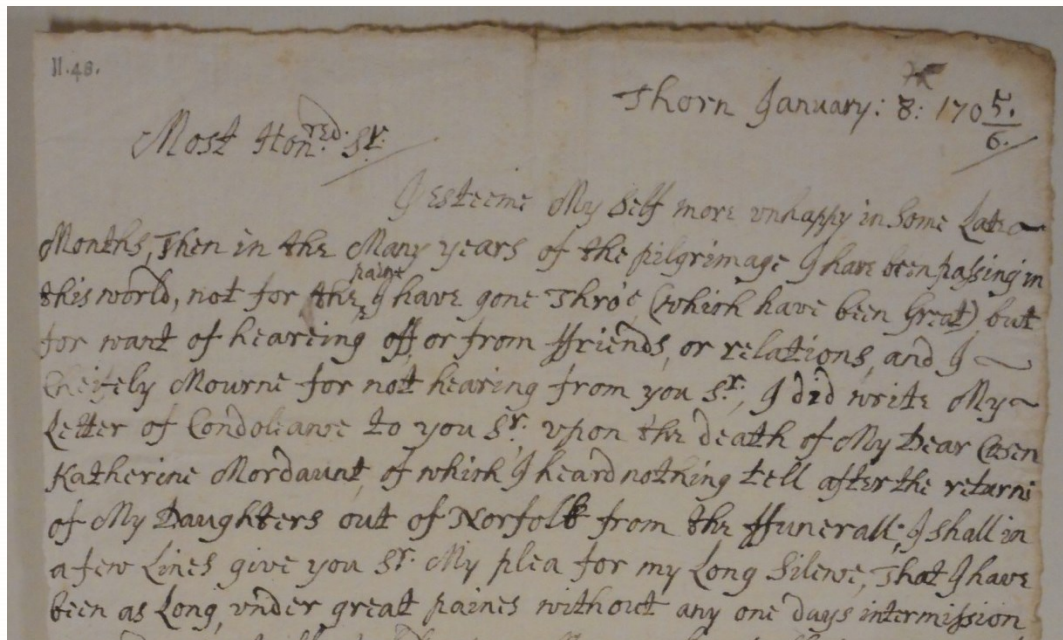 11.48.
Thorn January: 8: 1705/6.
Most Hon:red. Sr:
I esteeme My Self more vnhappy in Some Late
Months, Then in the Many years of the pilgrimage I have been passing in
this world, not for the paine I have gone Thro', (which have been Great) but
for want of heareing off, or from ffriends, or relations, and I
Cheifely Mourne for not hearing from you Sr:, I did write My
Letter of Condoleance to you Sr: vpon the death of My Dear Cosen
Katherine Mordaunt, of which I heard nothing tell after the returne
of My Daughters out of Norfolk from the ffunerall; I shall in
a few Lines give you Sr: My plea for my Long Silence, That I have
been as Long, vnder great paines without any one days intermission